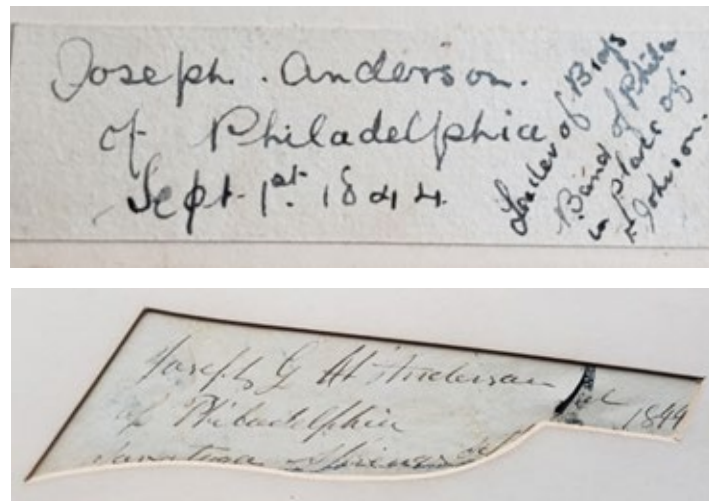 Joseph. Anderson.
of Philadelphia
Sept. 1st. 1844.
Leader of Brass
Band of Phila
in place of
F. Johnson.
Joseph G Anderson
of Philadelphia
Saratoga Springs
1844